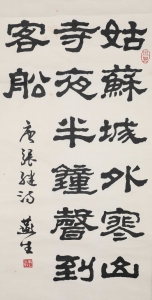 姑蘇城外寒山
寺夜半鐘聲到
客船
唐張継詩